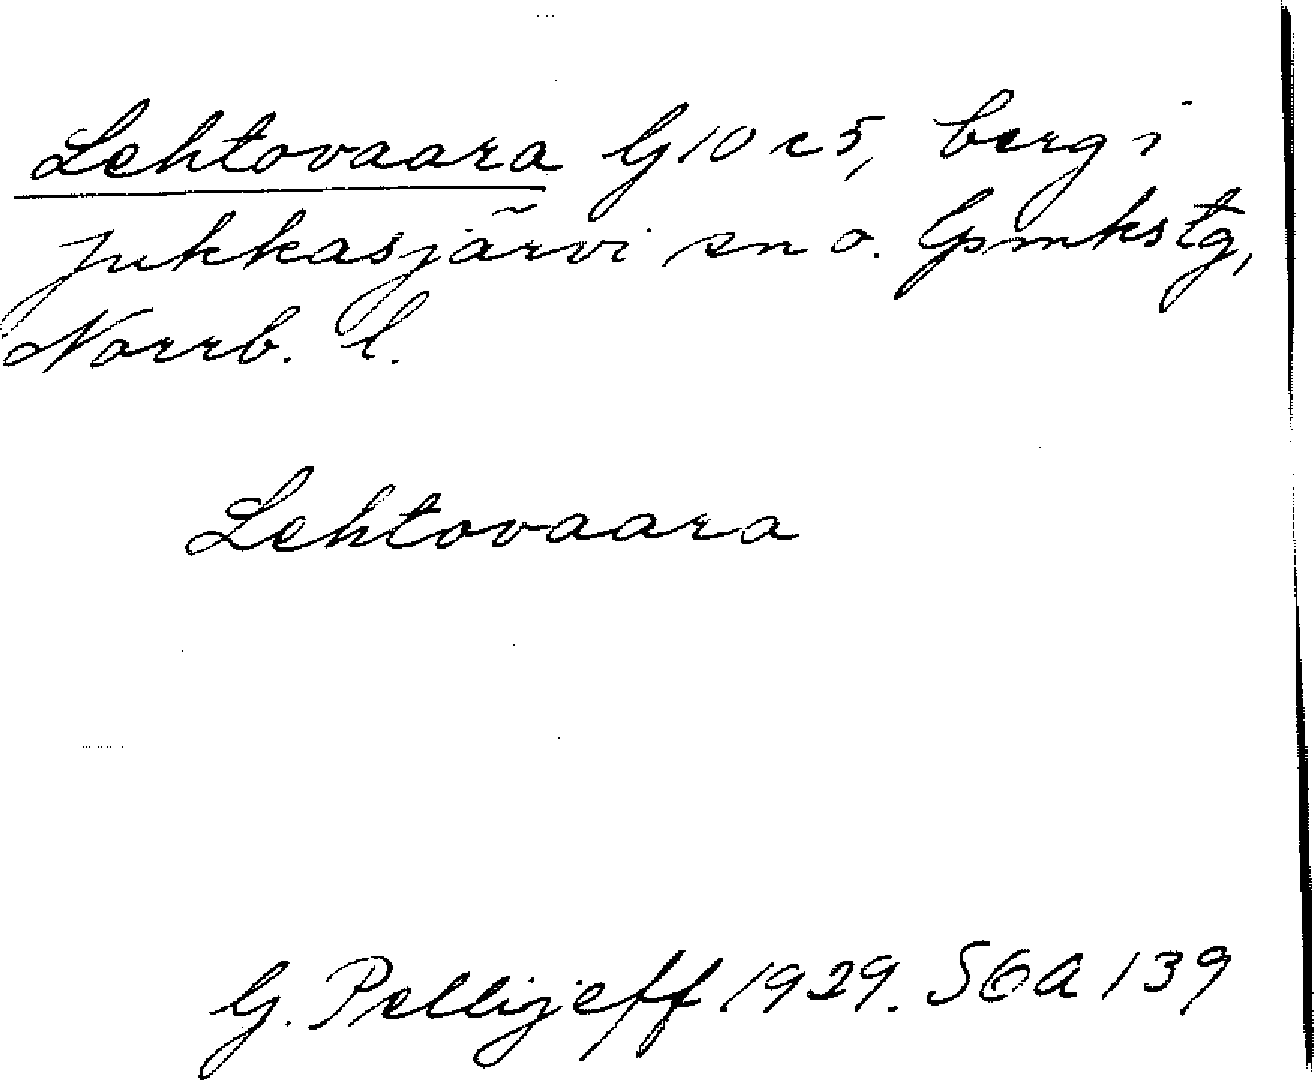 Lehtovaara G10c5, berg i
Jukkasjärvi sn o. Gsmkstg,
Norrb. l.
Lehtovaara
G. Pellijeff 1929. S6a139